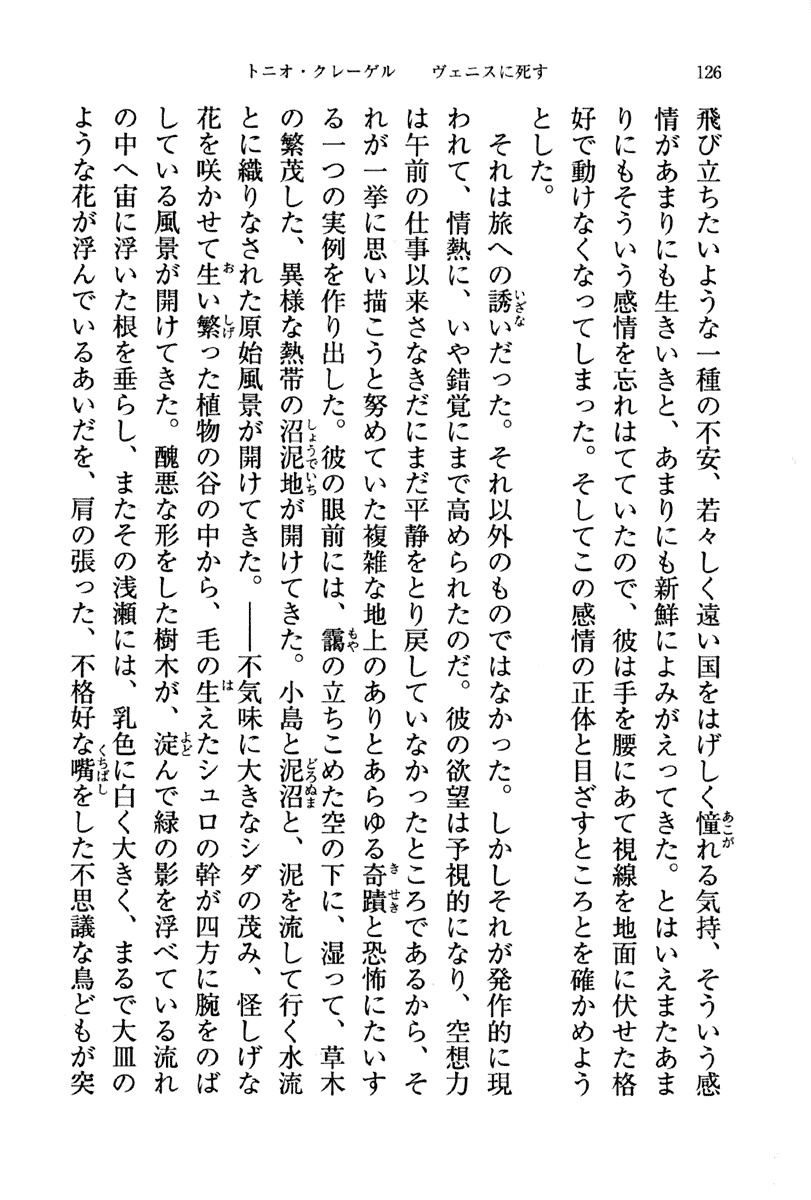 トニオ・クレーゲル　ヴェニスに死す
126
飛び立ちたいような一種の不安、若々しく遠い国をはげしく憧れる気持、そういう感
情があまりにも生きいきと、あまりにも新鮮によみがえってきた。とはいえまたあま
りにもそういう感情を忘れはてていたので、彼は手を腰にあて視線を地面に伏せた格
好で動けなくなってしまった。そしてこの感情の正体と目ざすところとを確かめよう
とした。
　それは旅への誘いだった。それ以外のものではなかった。しかしそれが発作的に現
われて、情熱に、いや錯覚にまで高められたのだ。彼の欲望は予視的になり、空想力
は午前の仕事以来さなきだにまだ平静をとり戻していなかったところであるから、そ
れが一挙に思い描こうと努めていた複雑な地上のありとあらゆる奇蹟と恐怖にたいす
る一つの実例を作り出した。彼の眼前には、靄の立ちこめた空の下に、湿って、草木
の繁茂した、異様な熱帯の沼泥地が開けてきた。小島と泥沼と、泥を流して行く水流
とに織りなされた原始風景が開けてきた。――不気味に大きなシダの茂み、怪しげな
花を咲かせて生い繁った植物の谷の中から、毛の生えたシュロの幹が四方に腕をのば
している風景が開けてきた。醜悪な形をした樹木が、淀んで緑の影を浮べている流れ
の中へ宙に浮いた根を垂らし、またその浅瀬には、乳色に白く大きく、まるで大皿の
ような花が浮んでいるあいだを、肩の張った、不格好な嘴をした不思議な鳥どもが突